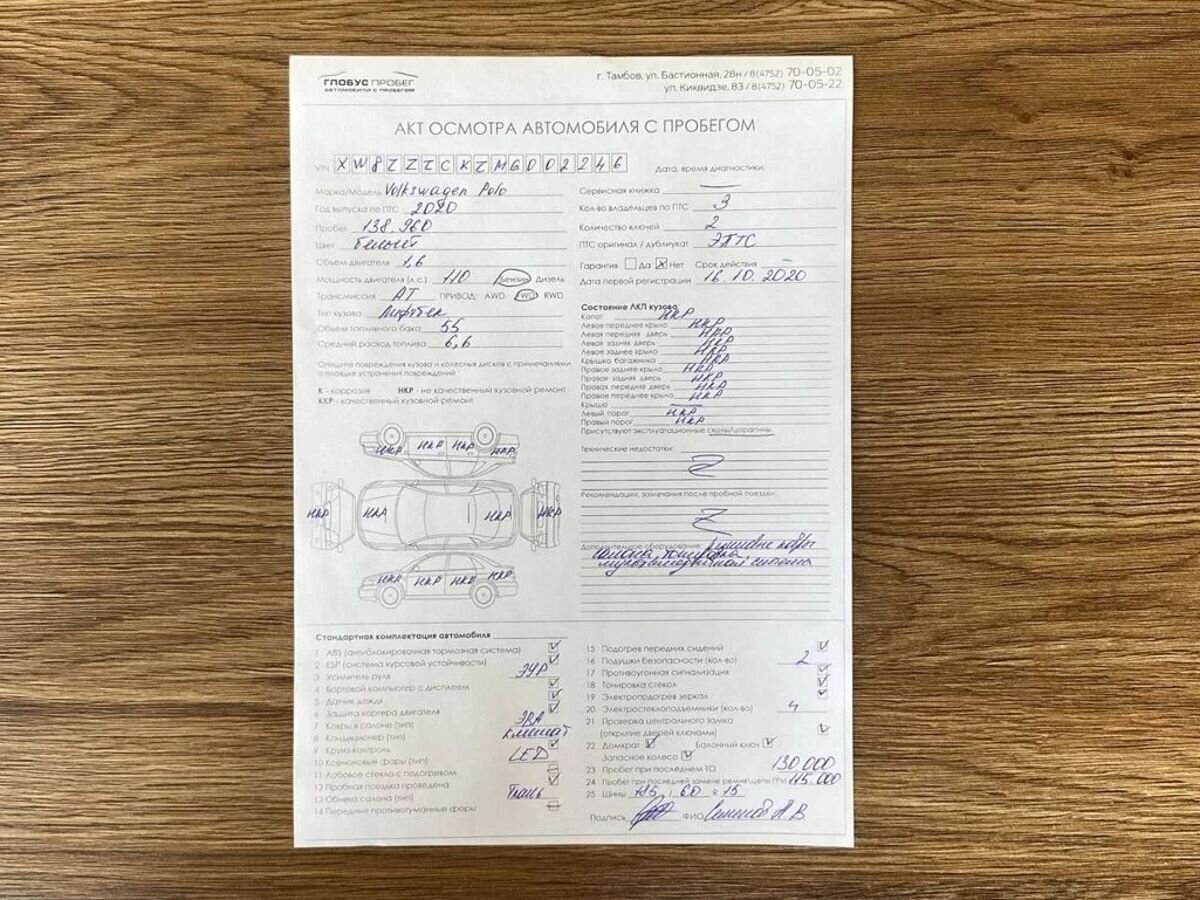 ГЛОБУС ПРОБЕГ
АВТОМОБИЛИ С ПРОБЕГОМ
г. Тамбов, ул. Бастионная, 28н / 8(4752) 70-05-02
ул. Киквидзе, 83 / 8(4752) 70-05-22
АКТ ОСМОТРА АВТОМОБИЛЯ С ПРОБЕГОМ
VIN XW8ZZZCKZMG002246
Марка/Модель Volkswagen Polo
Год выпуска по ПТС 2020
Пробег 138.960
Цвет белый
Объем двигателя 1,6
Мощность двигателя (л.с.) 110 Бензин Дизель
Трансмиссия АТ ПРИВОД: AWD FWD RWD
Тип кузова Лифтбек
Объем топливного бака 55
Средний расход топлива 6,6
Опишите повреждения кузова и колесных дисков с примечаниями
о порядке устранения повреждений
К - коррозия НКР - не качественный кузовной ремонт
ККР - качественный кузовной ремонт
НКР НКР НКР НКР
НКР НКР НКР НКР
НКР НКР НКР НКР
Дата, время диагностики:
Сервисная книжка —
Кол-во владельцев по ПТС 3
Количество ключей 2
ПТС оригинал / дубликат ЭПТС
Гарантия Да Нет Срок действия –
Дата первой регистрации 16.10.2020
Состояние ЛКП кузова
Капот НКР
Левое переднее крыло НКР
Левая передняя дверь НКР
Левая задняя дверь НКР
Левое заднее крыло НКР
Крышка багажника НКР
Правое заднее крыло НКР
Правая задняя дверь НКР
Правая передняя дверь НКР
Правое переднее крыло НКР
Крыша —
Левый порог НКР
Правый порог НКР
Присутствуют эксплуатационные сколы/царапины
Технические недостатки:
Рекомендации, замечания после пробной поездки:
Дополнительное оборудование:
салона, тонировка,
мультимедийная система
Стандартная комплектация автомобиля
1 ABS (антиблокировочная тормозная система)
2 ESP (система курсовой устойчивости)
3 Усилитель руля ЭУР
4 Бортовой компьютер с дисплеем
5 Датчик дождя
6 Защита картера двигателя
7 Ковры в салоне (тип) ЭВА
8 Кондиционер (тип) климат
9 Круиз-контроль
10 Ксеноновые фары (тип) LED
11 Лобовое стекло с подогревом
12 Пробная поездка проведена
13 Обивка салона (тип) Ткань
14 Передние противотуманные фары
15 Подогрев передних сидений
16 Подушки безопасности (кол-во) 2
17 Противоугонная сигнализация
18 Тонировка стекол
19 Электроподогрев зеркал
20 Электростеклоподъемники (кол-во) 4
21 Проверка центрального замка
(открытие дверей ключами)
22 Домкрат Балонный ключ
Запасное колесо
23 Пробег при последнем ТО 130 000
24 Пробег при последней замене ремня/цепи ГРМ 115.000
25 Шины / 60 R 15
Подпись ФИО Семенов А В.